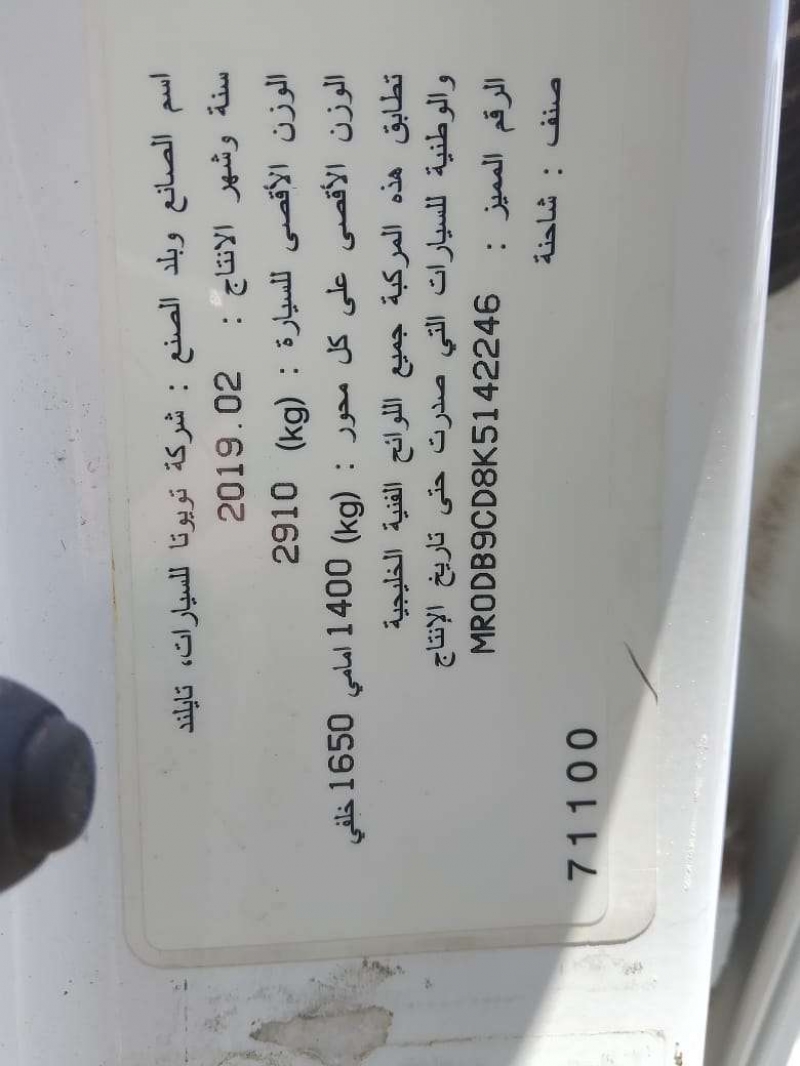 اسم الصانع وبلد الصنع : شركة تويوتا للسيارات، تايلند
سنة وشهر الانتاج : 2019.02
الوزن الأقصى للسيارة : (kg) 2910
الوزن الأقصى على كل محور : (kg) 1400 امامي 1650 خلفي
تطابق هذه المركبة جميع اللوائح الفنية الخليجية
والوطنية للسيارات التي صدرت حتى تاريخ الإنتاج
الرقم المميز : MR0DB9CD8K5142246
صنف : شاحنة
71100